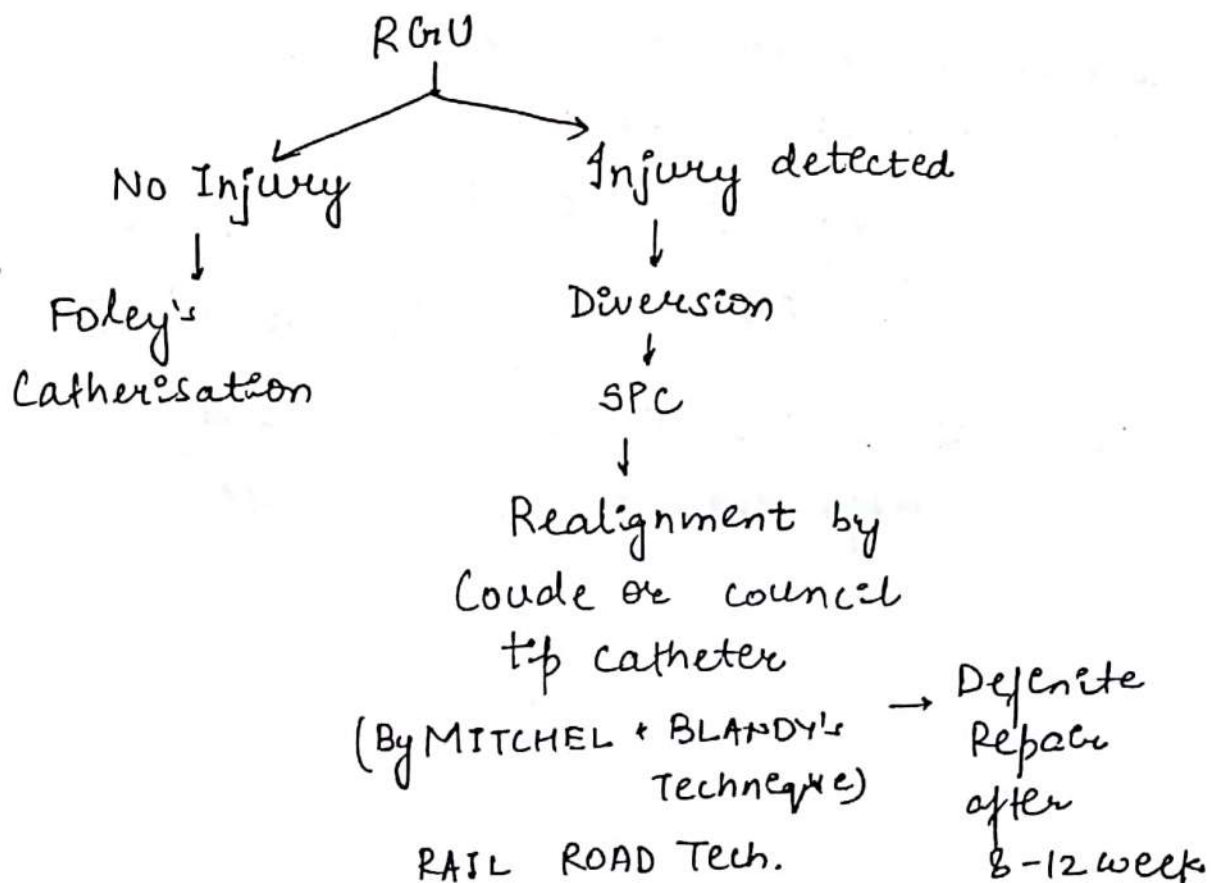 RGU
No Injury
Injury detected
Foley's
Catherisation
Diversion
SPC
Realignment by
Coude or council
tip catheter
(By MITCHEL + BLANDY's
Technique)
RAIL ROAD Tech.
→ Definite
Repair
after
8-12 week